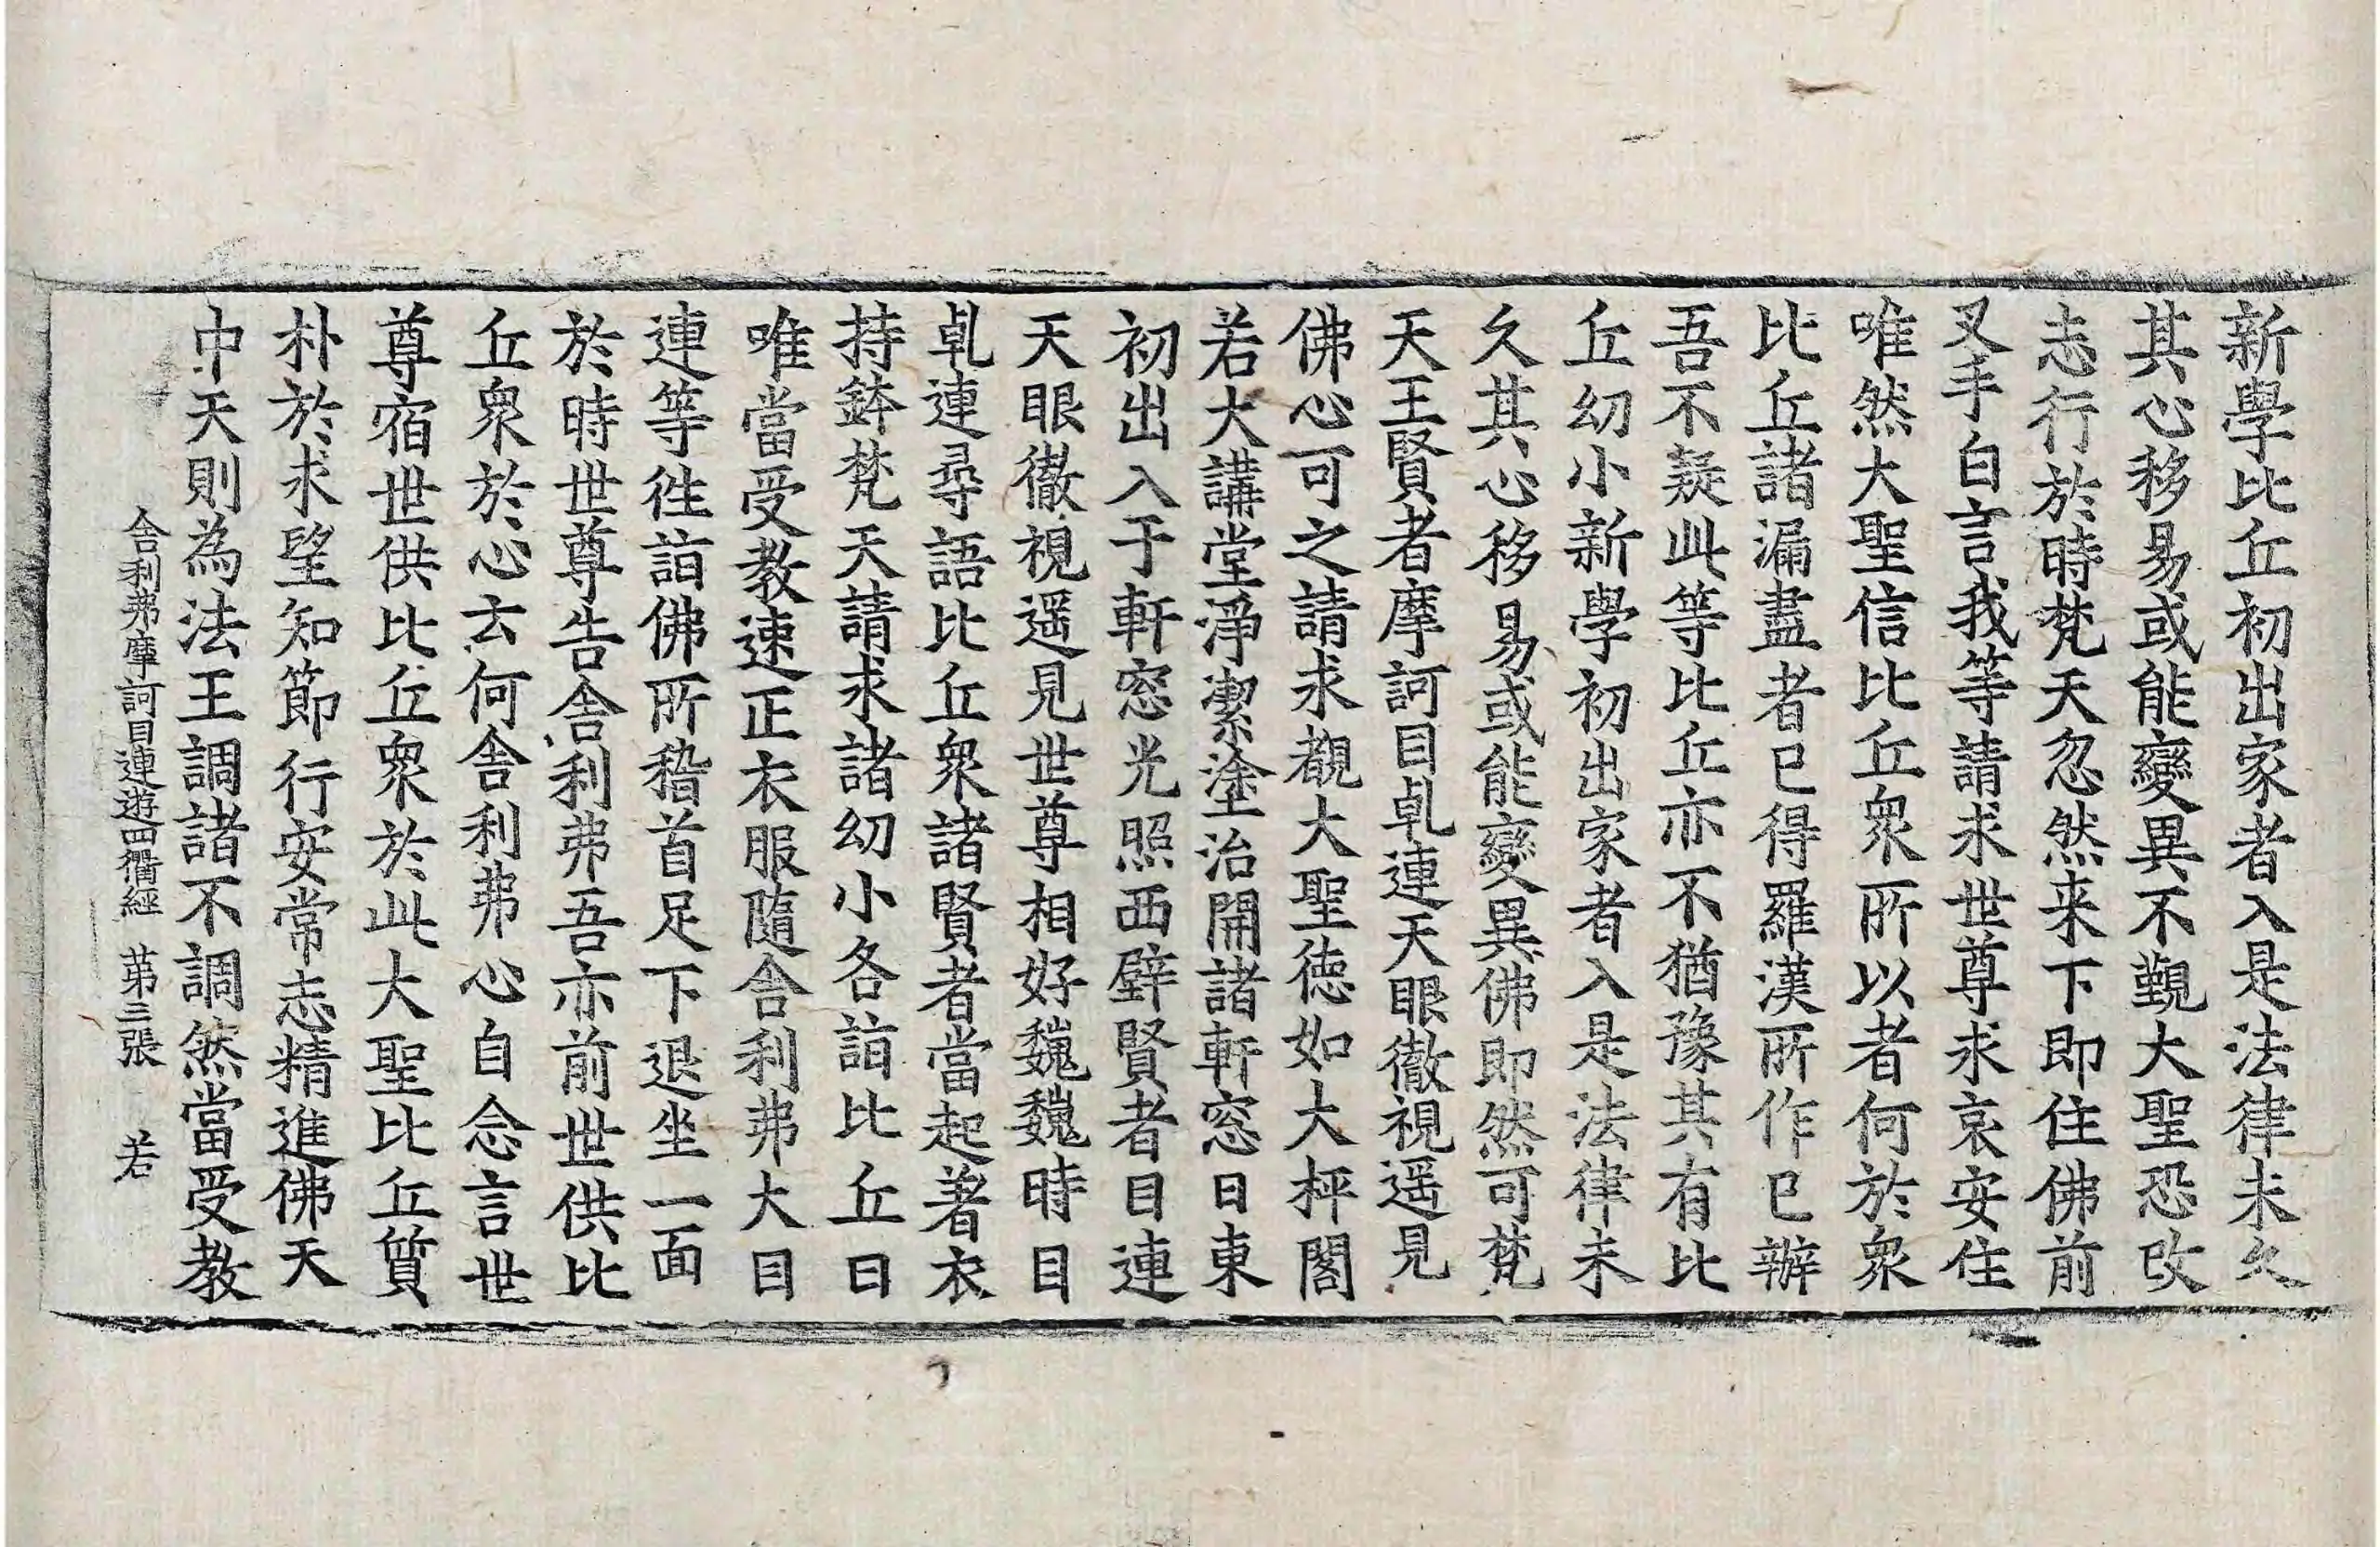 新學比丘初出家者入是法律未久
其心移易或能變異不覲大聖恐改
志行於時梵天忽然来下即住佛前
叉手白言我等請求世尊求哀安住
唯然大聖信比丘衆所以者何於衆
比丘諸漏盡者已得羅漢所作已辦
吾不疑此等比丘亦不猶豫其有比
丘幼小新學初出家者入是法律未
久其心移易或能變異佛即然可梵
天王賢者摩訶目乹連天眼徹視遥見
佛心可之請求覩大聖德如大枰閣
若大講堂淨潔塗治開諸軒窓日東
初出入于軒窓光照西壁賢者目連
天眼徹視遥見世尊相好巍巍時目
乹連尋語比丘衆諸賢者當起著衣
持鉢梵天請求諸幼小各詣比丘曰
唯當受教速正衣服隨舎利弗大目
連等往詣佛所稽首足下退坐一面
於時世尊告舎利弗吾亦前世供比
丘衆於心云何舎利弗心自念言世
尊宿世供比丘衆於此大聖比丘質
朴於求望知節行安常志精進佛天
中天則為法王調諸不調然當受教
舎利弗摩訶目連遊四衢經 苐三張 若